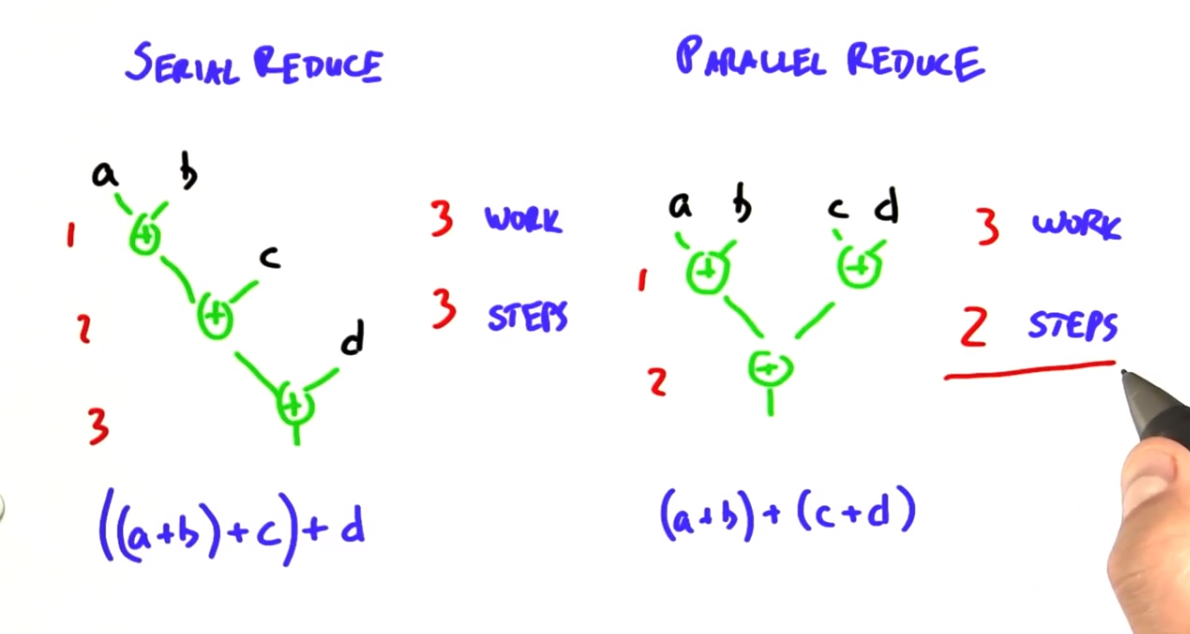 SERIAL REDUCE
a b
1 +
c
2 +
d
3 +
3 WORK
3 STEPS
((a+b)+c)+d
PARALLEL REDUCE
a b c d
1 + +
2 +
3 WORK
2 STEPS
(a+b)+(c+d)